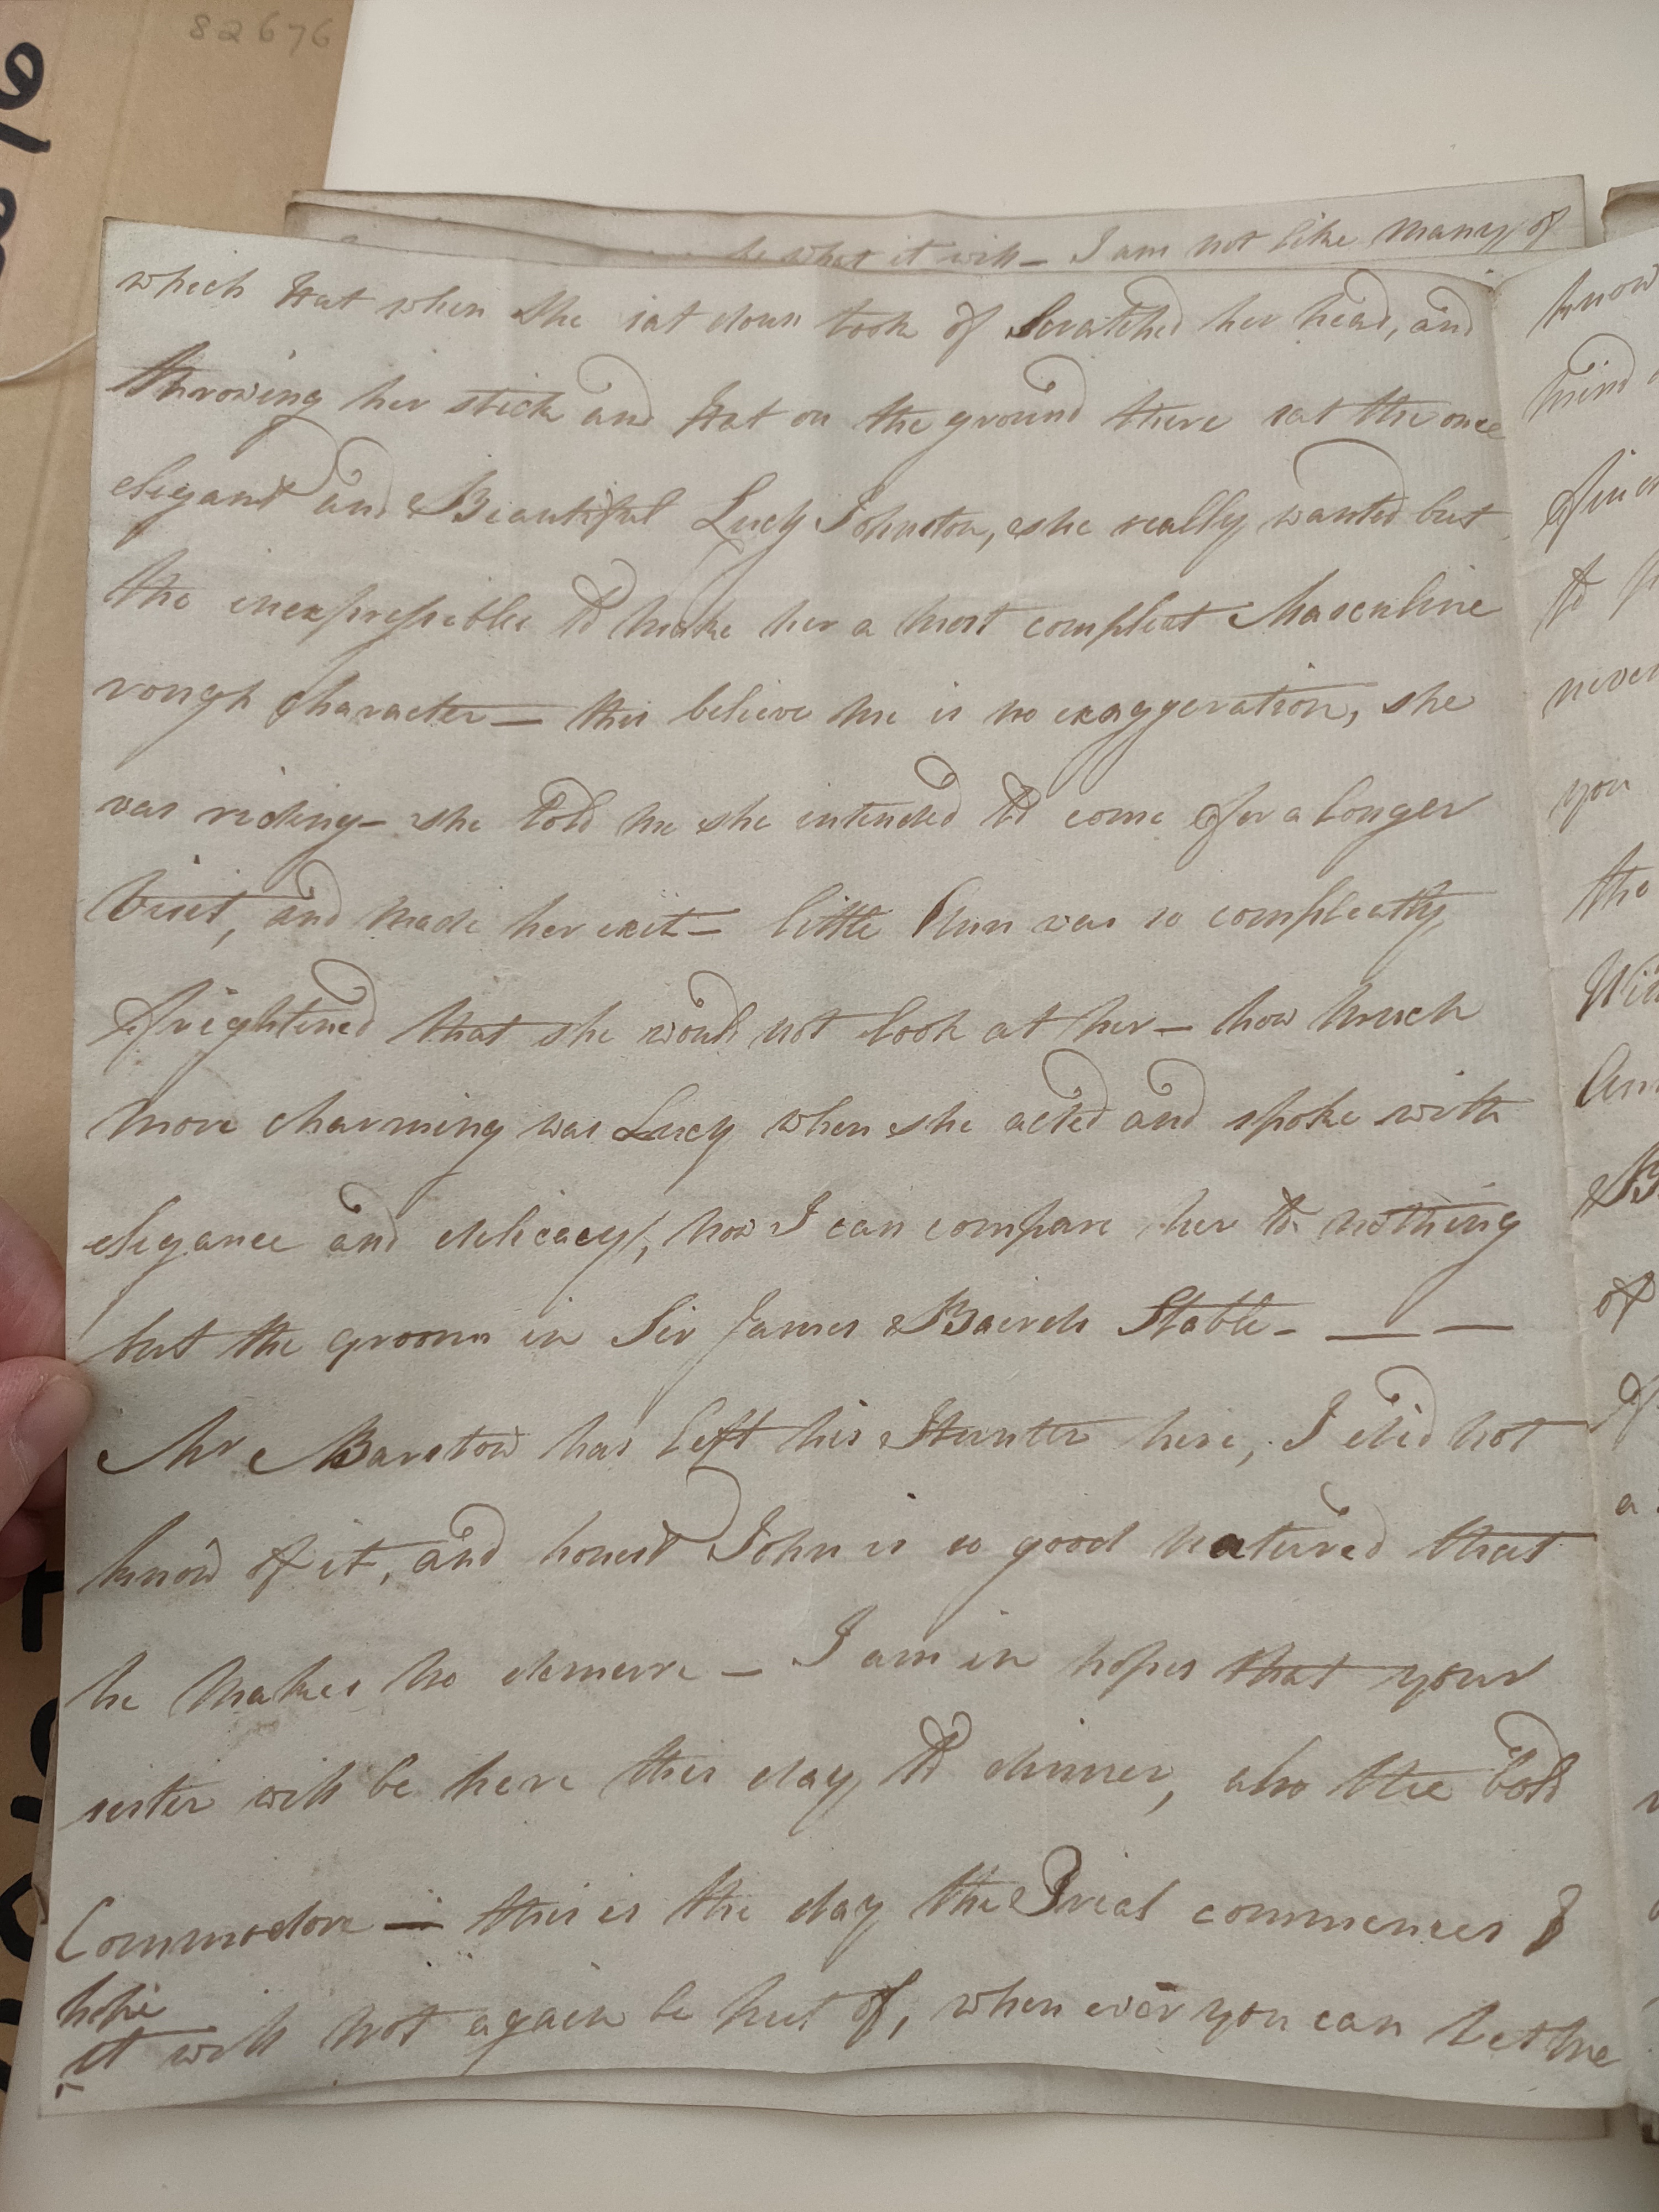 82676
what it will – I am not like many of
which Hat when she sat down took of Scratched her head, and
throwing her stick and Hat on the ground there sat the once
elegant and Beautiful Lucy Johnston, she really wanted but
the inexpressibles to make her a most compleat Masculine
rough character – this believe me is no exaggeration, she
was riding – she told me she intended to come for a longer
Visit, and made her exit – little was so compleatly
frightened that she would not look at her – how much
more charming was Lucy when she acted and spoke with
elegance and delicacy, now I can compare her to nothing
but the groom in Sir James Bairds Stable – — —
Mr Barstow has left his Hunter here, I did not
know of it, and honest John is so good natured that
he makes no demurre – I am in hopes that your
sister will be here this day to dinner, also the bold
Commodore — this is the day the Trial commences I
hope
it will not again be put of, when ever you can let me
know
mind
to
never
you
the
of
a